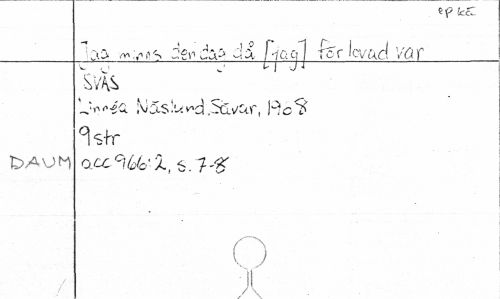 ep kE
Jag minns den dag då [jag] förlovad var
SVÄS
Linnéa Näslund, Sävar, 1908
9str
DAUM acc 966:2, s. 7-8